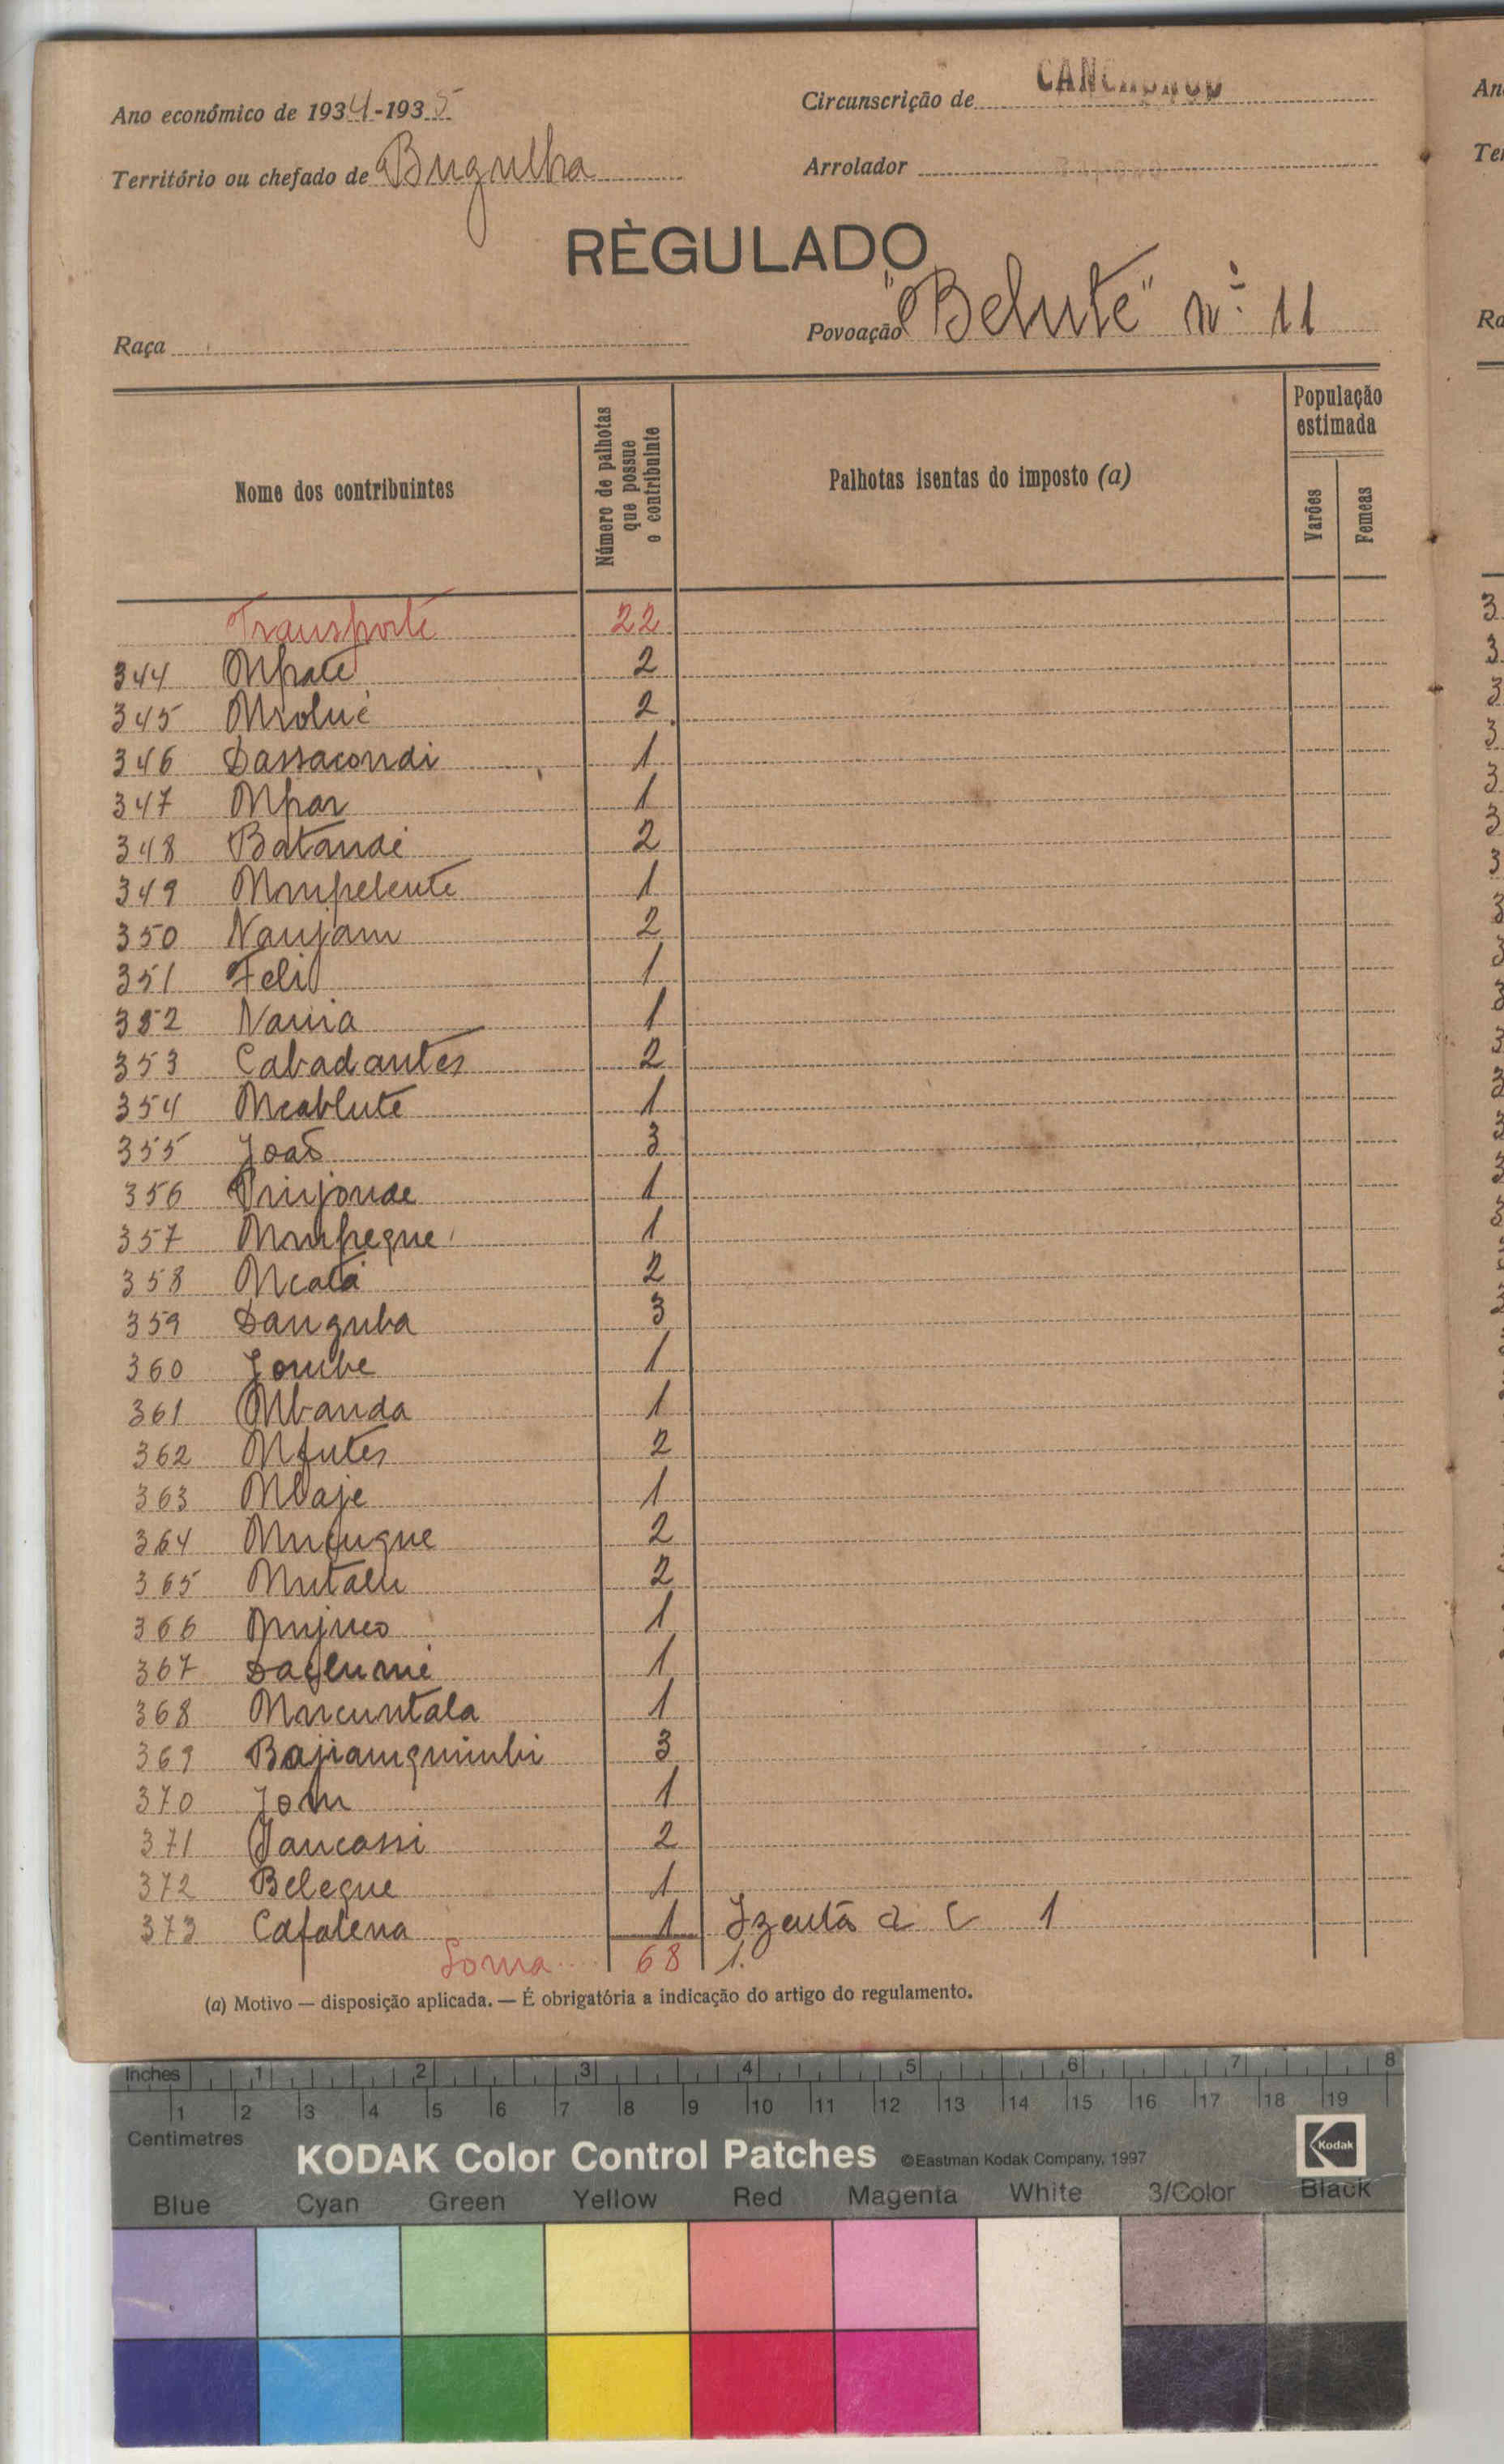 Ano económico de 1934-1935
Circunscrição de CANCHUNGO
Território ou chefado de Bugulha
Arrolador
RÈGULADO
Raça
Povoação "Belute" nº 11
Nome dos contribuintes
Número de palhotas que possue o contribuinte
Palhotas isentas do imposto (a)
População estimada
Varões
Femeas
Transporte 22
344 Mpate 2
345 Nrolué 2
346 Dassacondi 1
347 Mpar 1
348 Batandé 2
349 Mmpelente 1
350 Nanjam 2
351 Feli 1
352 Nania 1
353 Cabadantes 2
354 Ncablute 1
355 João 3
356 Prinjonde 1
357 Mmpeque 1
358 Ncatá 2
359 Danguba 3
360 Jombe 1
361 Mbanda 1
362 Nfutes 2
363 Mbaje 1
364 2
365 Mutalu 2
366 1
367 1
368 Mucuntala 1
369 Bajianquimbi 3
370 Jom 1
371 Jancassi 2
372 Belegue 1
373 Cafatena 1 Izenta a C 1
Soma 68 1
(a) Motivo — disposição aplicada. — É obrigatória a indicação do artigo do regulamento.
Inches 1 2 3 4 5 6 7 8
1 2 3 4 5 6 7 8 9 10 11 12 13 14 15 16 17 18 19
Centimetres
KODAK Color Control Patches ©Eastman Kodak Company, 1997 Kodak
Blue Cyan Green Yellow Red Magenta White 3/Color Black